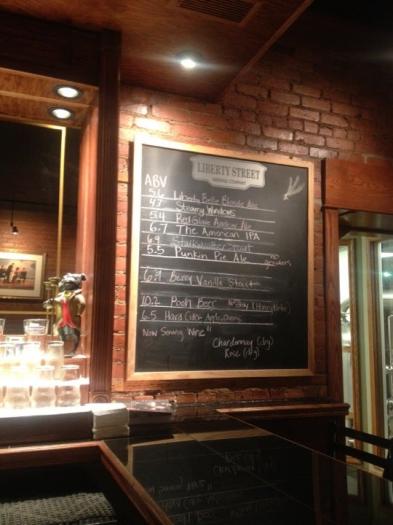 LIBERTY STREET
BREWING COMPANY
ABV
5.6 Liberty Belle Blonde Ale
4.7 Steamy Windows
5.4 Red Glare Amber Ale
6.7 The American IPA
6.9 Starkweather Stout
5.5 Punkin Pie Ale no growlers
6.9 Berry Vanilla Stout
10.2 Pooh Beer
6.5 Hard Cider
Now Serving Wine
Chardonnay (dry)
Rosé (dry)